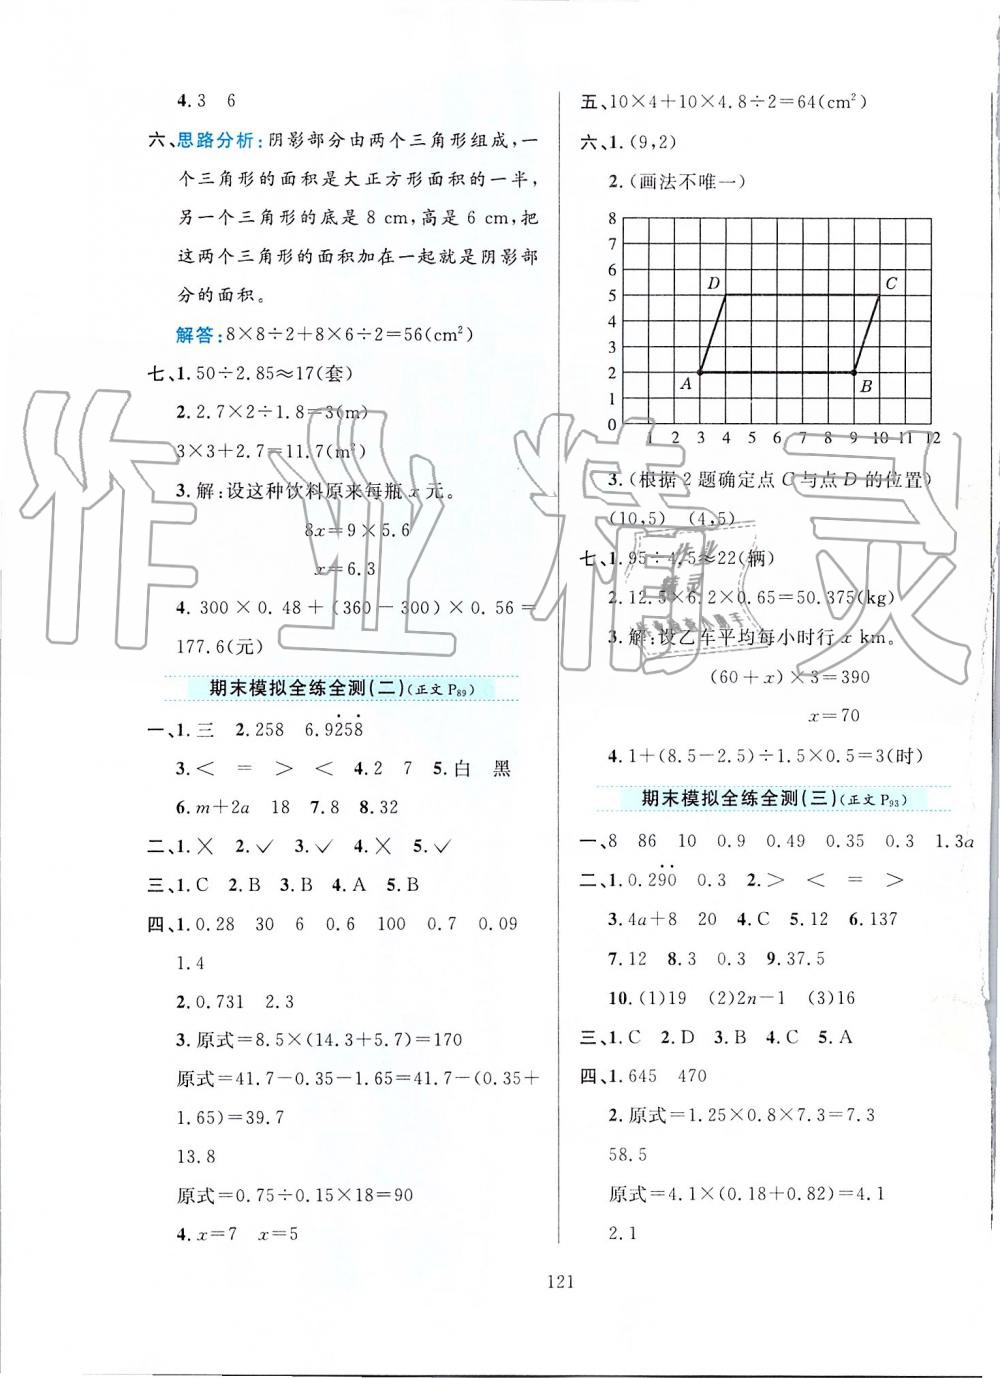 4.3 6
六、思路分析:阴影部分由两个三角形组成,一
个三角形的面积是大正方形面积的一半,
另一个三角形的底是 8 cm,高是 6 cm,把
这两个三角形的面积加在一起就是阴影部
分的面积。
解答:8×8÷2+8×6÷2=56(cm²)
七、1.50÷2.85≈17(套)
2.2.7×2÷1.8=3(m)
3×3+2.7=11.7(m²)
3.解:设这种饮料原来每瓶 x 元。
8x=9×5.6
x=6.3
4.300×0.48+(360-300)×0.56=
177.6(元)
期末模拟全练全测(二)(正文 P89)
一、1.三 2.258 6.92̇58̇
3.< = > < 4.2 7 5.白 黑
6.m+2a 18 7.8 8.32
二、1.× 2.✓ 3.✓ 4.× 5.✓
三、1.C 2.B 3.B 4.A 5.B
四、1.0.28 30 6 0.6 100 0.7 0.09
1.4
2.0.731 2.3
3.原式=8.5×(14.3+5.7)=170
原式=41.7-0.35-1.65=41.7-(0.35+
1.65)=39.7
13.8
原式=0.75÷0.15×18=90
4.x=7 x=5
五、10×4+10×4.8÷2=64(cm²)
六、1.(9,2)
2.(画法不唯一)
8
7
6
5
4
3
2
1
0
D
C
A
B
1 2 3 4 5 6 7 8 9 10 11 12
3.(根据 2 题确定点 C 与点 D 的位置)
(10,5) (4,5)
七、1.95÷4.5≈22(辆)
2.12.5×6.2×0.65=50.375(kg)
3.解:设乙车平均每小时行 x km。
(60+x)×3=390
x=70
4.1+(8.5-2.5)÷1.5×0.5=3(时)
期末模拟全练全测(三)(正文 P93)
一、8 86 10 0.9 0.49 0.35 0.3 1.3a
二、1.0.29̇0̇ 0.3 2.> < = >
3.4a+8 20 4.C 5.12 6.137
7.12 8.3 0.3 9.37.5
10.(1)19 (2)2n-1 (3)16
三、1.C 2.D 3.B 4.C 5.A
四、1.645 470
2.原式=1.25×0.8×7.3=7.3
58.5
原式=4.1×(0.18+0.82)=4.1
2.1
121
作业精灵
作业
精灵